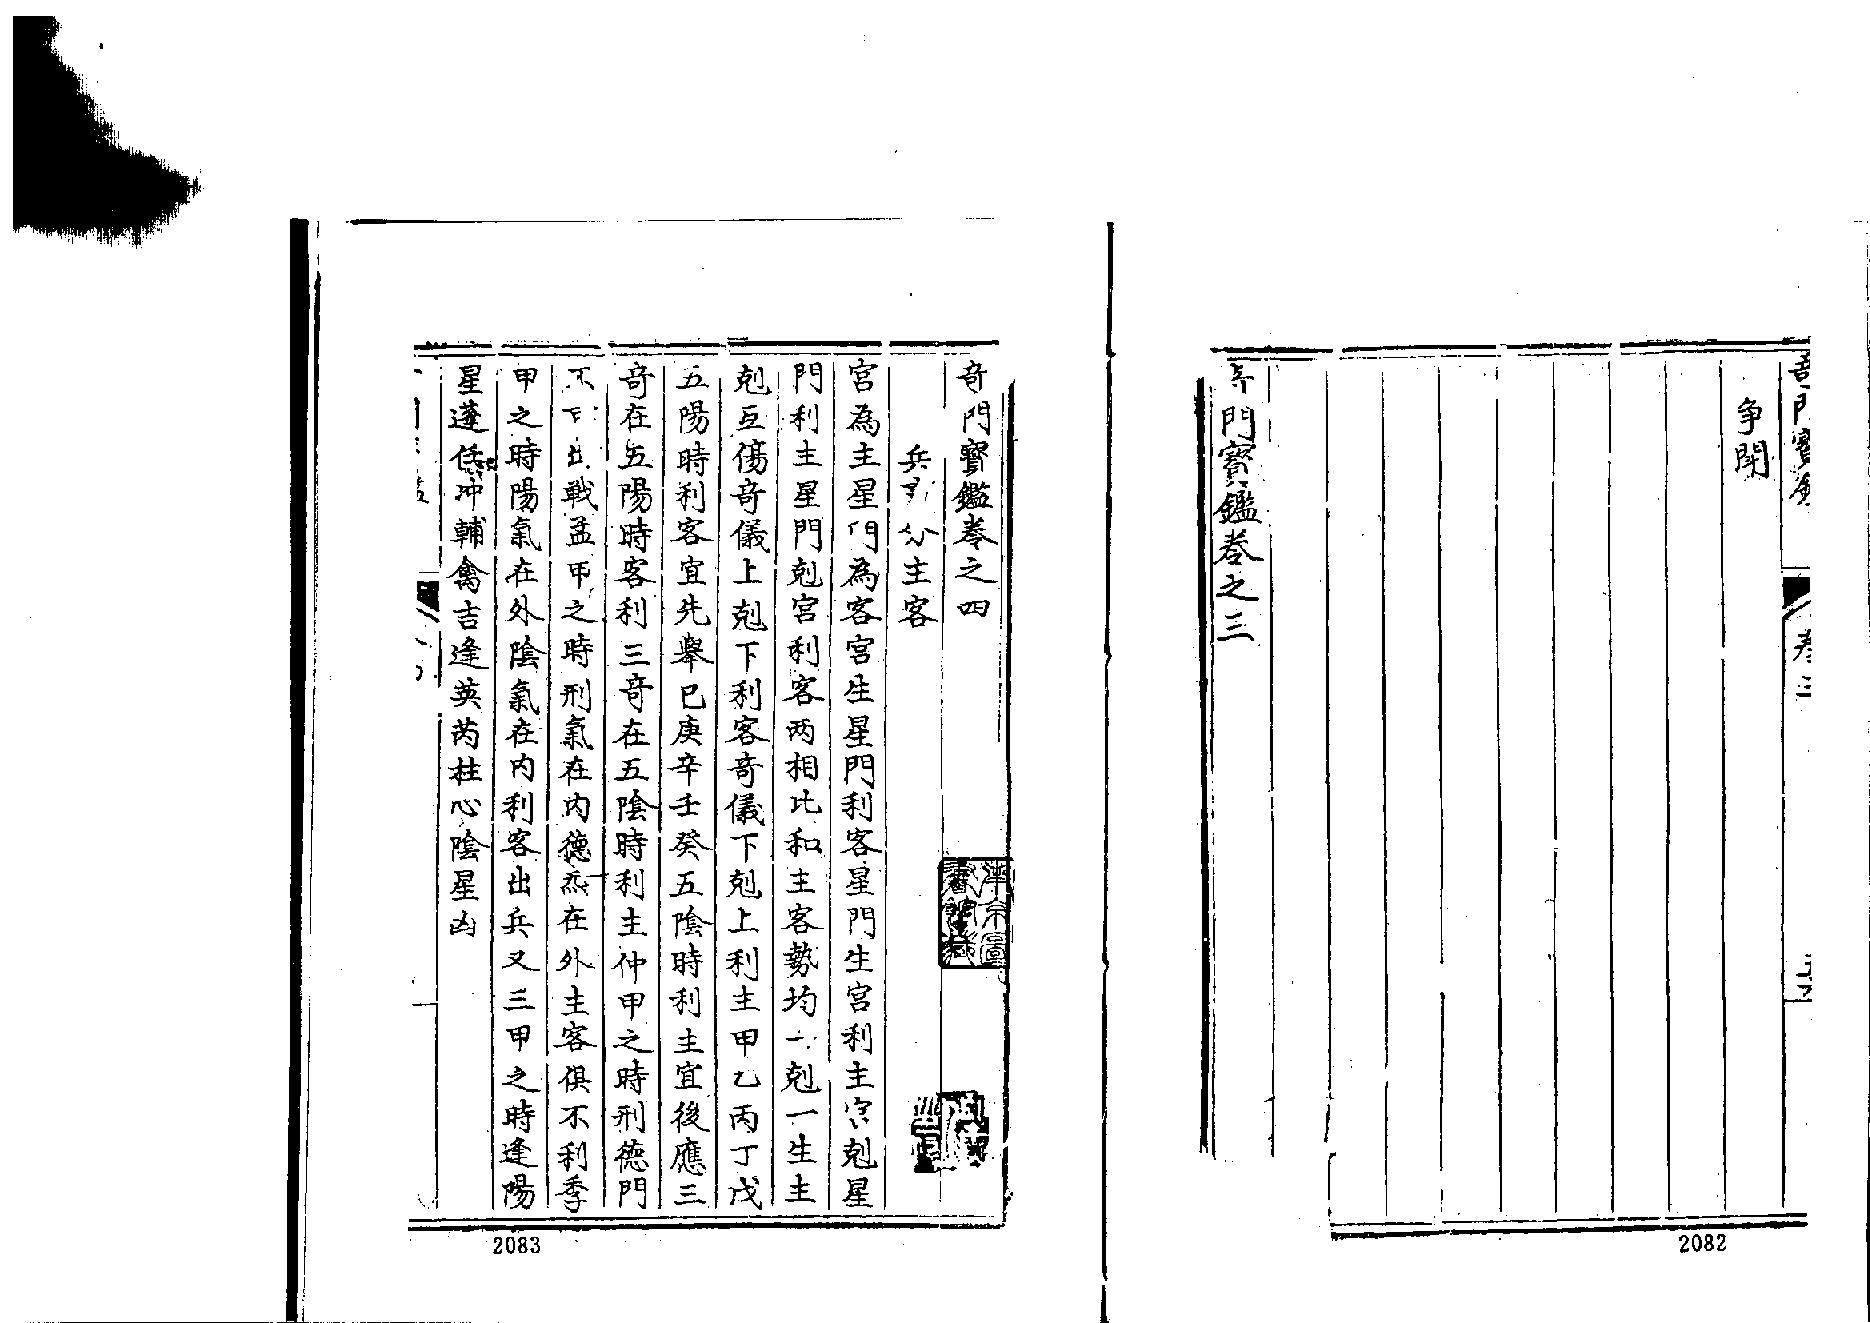 爭鬧
奇門寳鑑卷之三
2082
奇門寳鑑卷之四
兵 分主客
宮為主星門為客宮生星門利客星門生宮利主宮剋星
門利主星門剋宮利客两相比和主客勢均一剋一生主
剋互傷奇儀上剋下利客奇儀下剋上利主甲乙丙丁戊
五陽時利客宜先舉已庚辛壬癸五陰時利主宜後應三
奇在五陽時客利三奇在五陰時利主仲甲之時刑德門
戰孟甲之時刑氣在内德炁在外主客俱不利季
甲之時陽氣在外陰氣在内利客出兵又三甲之時逢陽
星蓬任冲輔禽吉逢英芮柱心陰星凶
2083